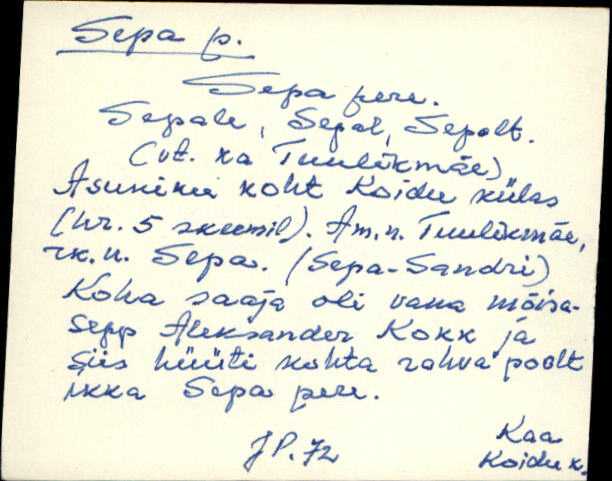 Sepa p.
Sepa pere.
Sepale, Sepal, Sepalt.
(vt. ka Tuulikmäe)
Asuniku koht Koidu külas
(nr. 5 skeemil). Am.n. Tuulikmäe,
rk.n. Sepa. (Sepa-Sandri)
Koha saaja oli vana mõisa-
sepp Aleksander Kokk ja
siis hüüti kohta rahva poolt
ikka Sepa pere.
JP. 72
Kaa
Koidu k.